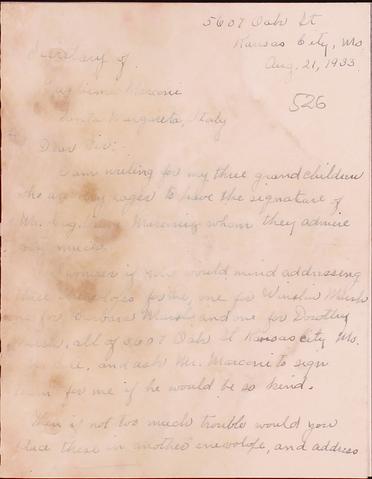 5607 Oak St
Kansas City, Mo
Aug. 21, 1933
526
Secretary of
Marconi
Santa Margareta, Italy
Dear Sir:-
I am writing for my three grandchildren
who are very eager to have the signature of
Mr. Marconi whom they admire
very much.
I wonder if you would mind addressing
three envelopes for me, one for Winslow Marsh
one for Barbara Marsh and one for Dorothy
Marsh, all of 5607 Oak St Kansas City Mo.
and ask Mr. Marconi to sign
them for me if he would be so kind.
Then if not too much trouble would you
place these in another envelope, and address